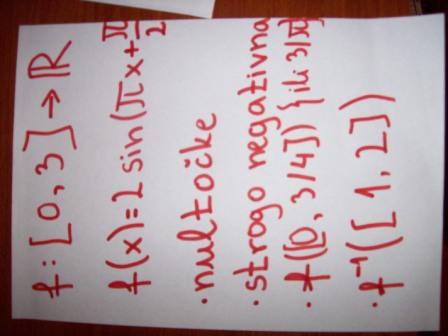 f: [0, 3] → ℝ
f(x) = 2 sin(πx + π/2
· nultočke
· strogo negativna
· f([0, 3/4]) {ili 3/π
· f⁻¹([1, 2])